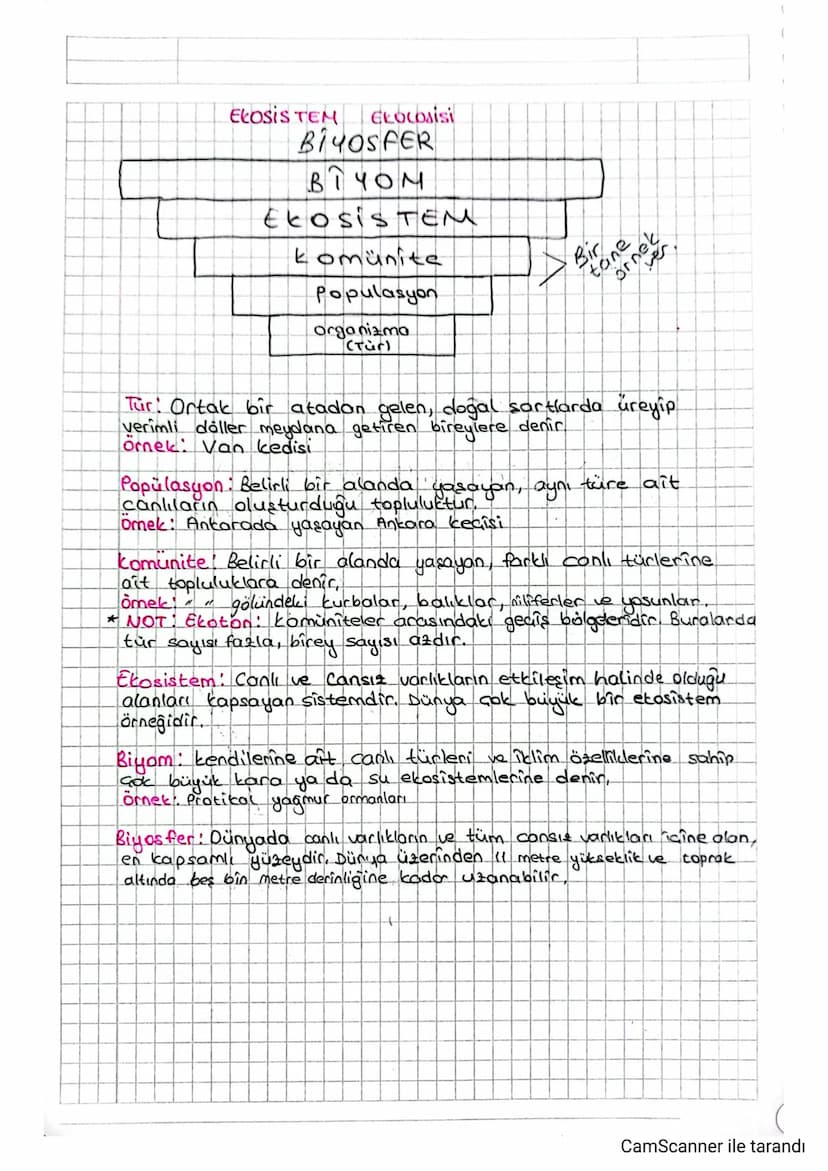 EKOSİSTEM EKOLOJİSİ
BİYOSFER
BİYOM
EKOSİSTEM
Komünite
Populasyon
organizma
(Tür)
Bir
tane
örnek
Tür: Ortak bir atadan gelen, doğal şartlarda üreyip
verimli döller meydana getiren bireylere denir.
Örnek: Van kedisi
Popülasyon: Belirli bir alanda yaşayan, aynı türe ait
canlıların oluşturduğu topluluktur.
Örnek: Ankarada yaşayan Ankara keçisi
Komünite: Belirli bir alanda yaşayan, farklı canlı türlerine
ait topluluklara denir.
Örnek: " " gölündeki kurbalar, balıklar, nilüferler ve yosunlar.
* NOT: Ekoton: Komüniteler arasındaki geçiş bölgeleridir. Buralarda
tür sayısı fazla, birey sayısı azdır.
Ekosistem: Canlı ve Cansız varlıkların etkileşim halinde olduğu
alanları kapsayan sistemdir. Dünya çok büyük bir ekosistem
örneğidir.
Biyom: Kendilerine ait canlı türleni ve iklim özelliklerine sahip
çok büyük kara ya da su ekosistemlerine denir.
Örnek: Protikal yağmur ormanları
Biyosfer: Dünyada canlı varlıkların ve tüm cansız varlıkları içine alan,
en kapsamlı yüzeydir. Dünya üzerinden 11 metre yükseklik ve toprak
altında beş bin metre derinliğine kadar uzanabilir.
CamScanner ile tarandı